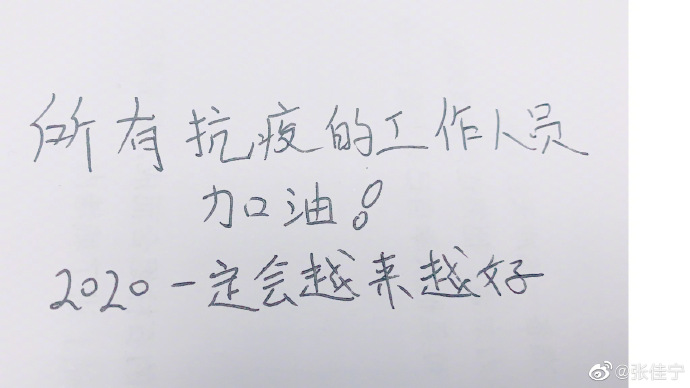 所有抗疫的工作人员
加油！
2020一定会越来越好
@张佳宁